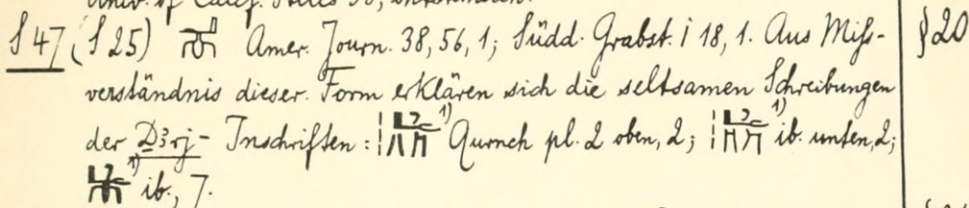 § 47 (§ 25) Amer. Journ. 38, 56, 1; Südd. Grabst. i 18, 1. Aus Miß- § 20
verständnis dieser Form erklären sich die seltsamen Schreibungen
der Ḏꜣrj- Inschriften: 1) Qurneh pl. 2 oben, 2; 1) ib. unten, 2;
1) ib., 7.